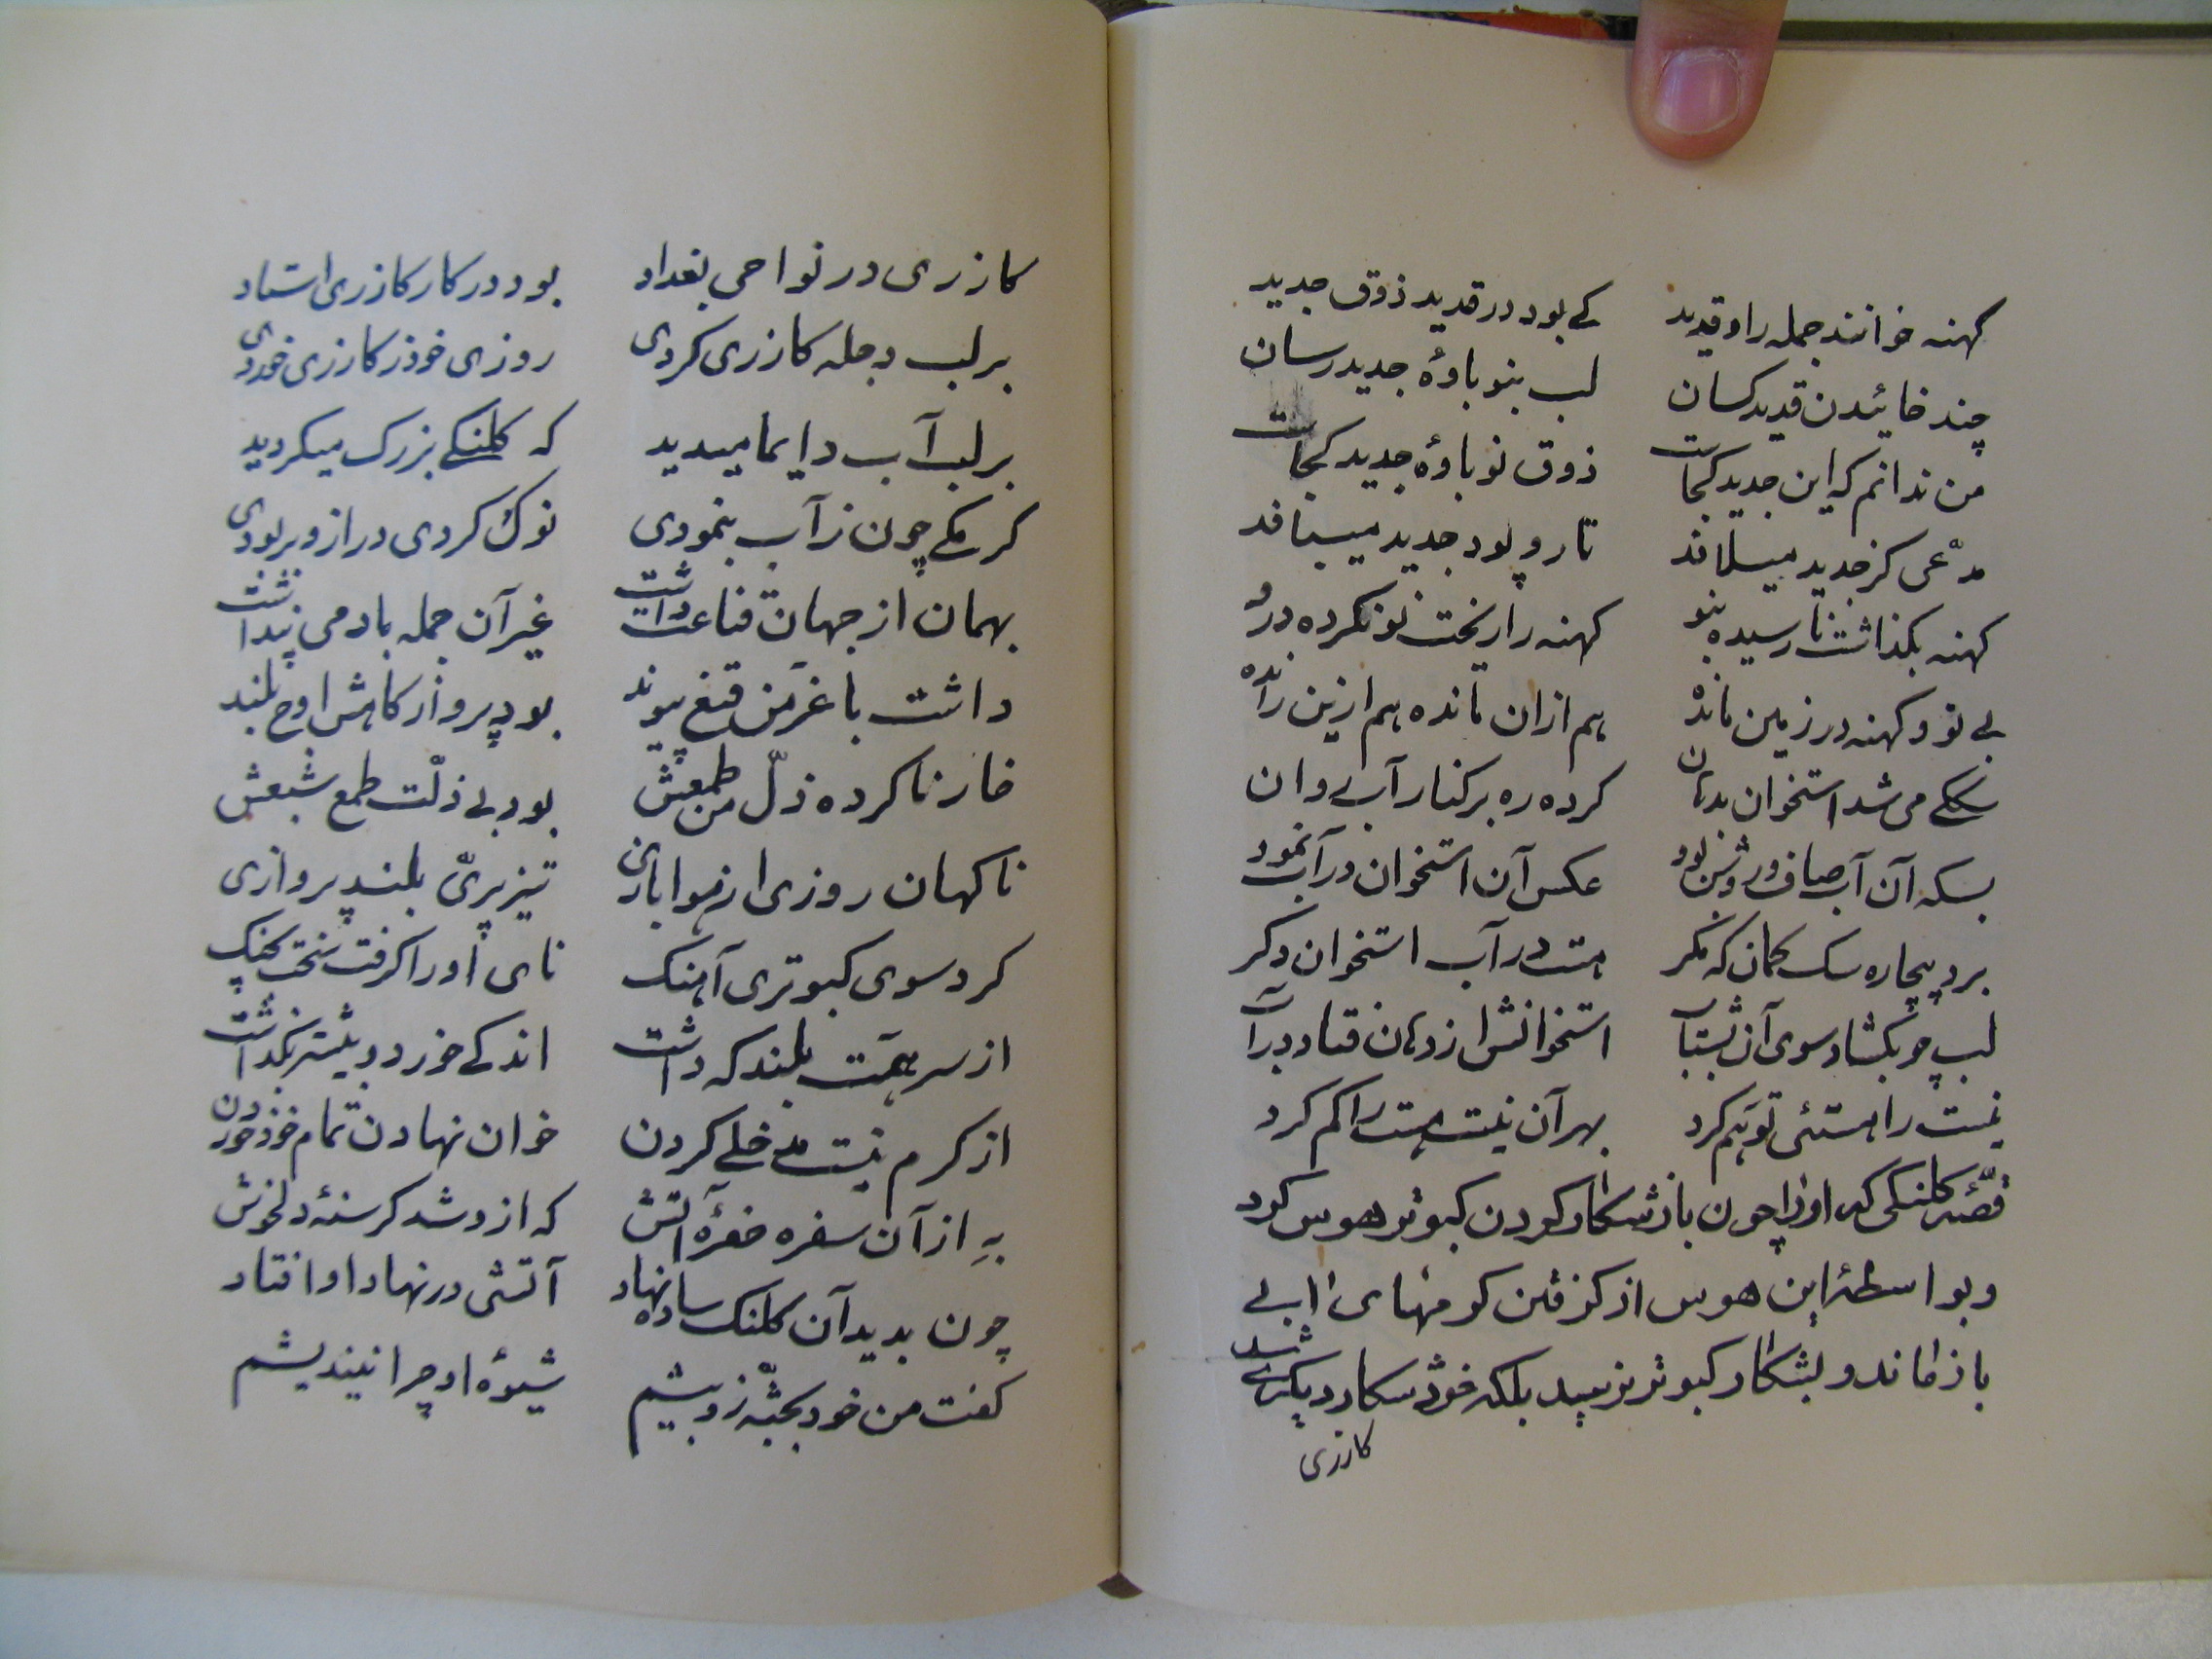 کهنه خوانند جمله را و قدید کے بود در قدید ذوق جدید
چند خائیدن قدید کسان لب بنو باوهٔ جدید رسان
من ندانم که این جدید کجاست ذوق نو باوهٔ جدید کجاست
مدّعی کز جدید میلافد تار و پود جدید میبافد
کهنه بکذاشت نا رسیده بنو کهنه را ریخت نو نکرده درو
بے نو و کهنه در زمین مانده هم ازان مانده هم ازین رانده
سکے می شد استخوان بدهان کرده ره بر کنار آبے روان
بسکه آن آب صاف و روشن بود عکس آن استخوان در آب نمود
برد بیچاره سک کمان که مکر هست در آب استخوان دکر
لب چو بکشاد سوی آن بشتاب استخوانش از دهان فتاد در آب
نیست را هستئی توهّم کرد بهر آن نیست هست را کم کرد
قصّهٔ کلنکی که او را چون باز شکار کردن کبوتر هوس کرد
و بواسطهٔ این هوس از کرفتن کرمهای آبے
باز ماند و بشکار کبوتر نرسید بلکه خود شکار دیکرے شد
کازری
کازری در نواحی بغداد بود در کار کازری استاد
بر لب دجله کازری کردی روزی خود ز کازری خوردی
بر لب آب دایما میدید که کلنکے بزرک میکردید
کرمکے چون ز آب بنمودی نوک کردی دراز و بربودی
بهمان از جهان قناعت داشت غیر آن جمله باد می پنداشت
داشت با عزّ من قنع پیوند بود پرواز کاهش اوج بلند
خار ناکرده ذلّ من طمعش بود بے ذلّت طمع شبعش
ناکهان روزی از هوا بازی تیز پریّ بلند پروازی
کرد سوی کبوتری آهنک نای او را کرفت سخت بچنک
از سر همّت بلند که داشت اندکے خورد و بیشتر بکذاشت
از کرم نیست مدخلے کردن خوان نهادن تمام خود خوردن
به از آن سفره حفرهٔ آتش که ازو شد کرسنهٔ دلخوش
چون بدید آن کلنک ساده نهاد آتشی در نهاد او افتاد
کفت من خود بجثّه زو بیشم شیوهٔ او چرا نیندیشم